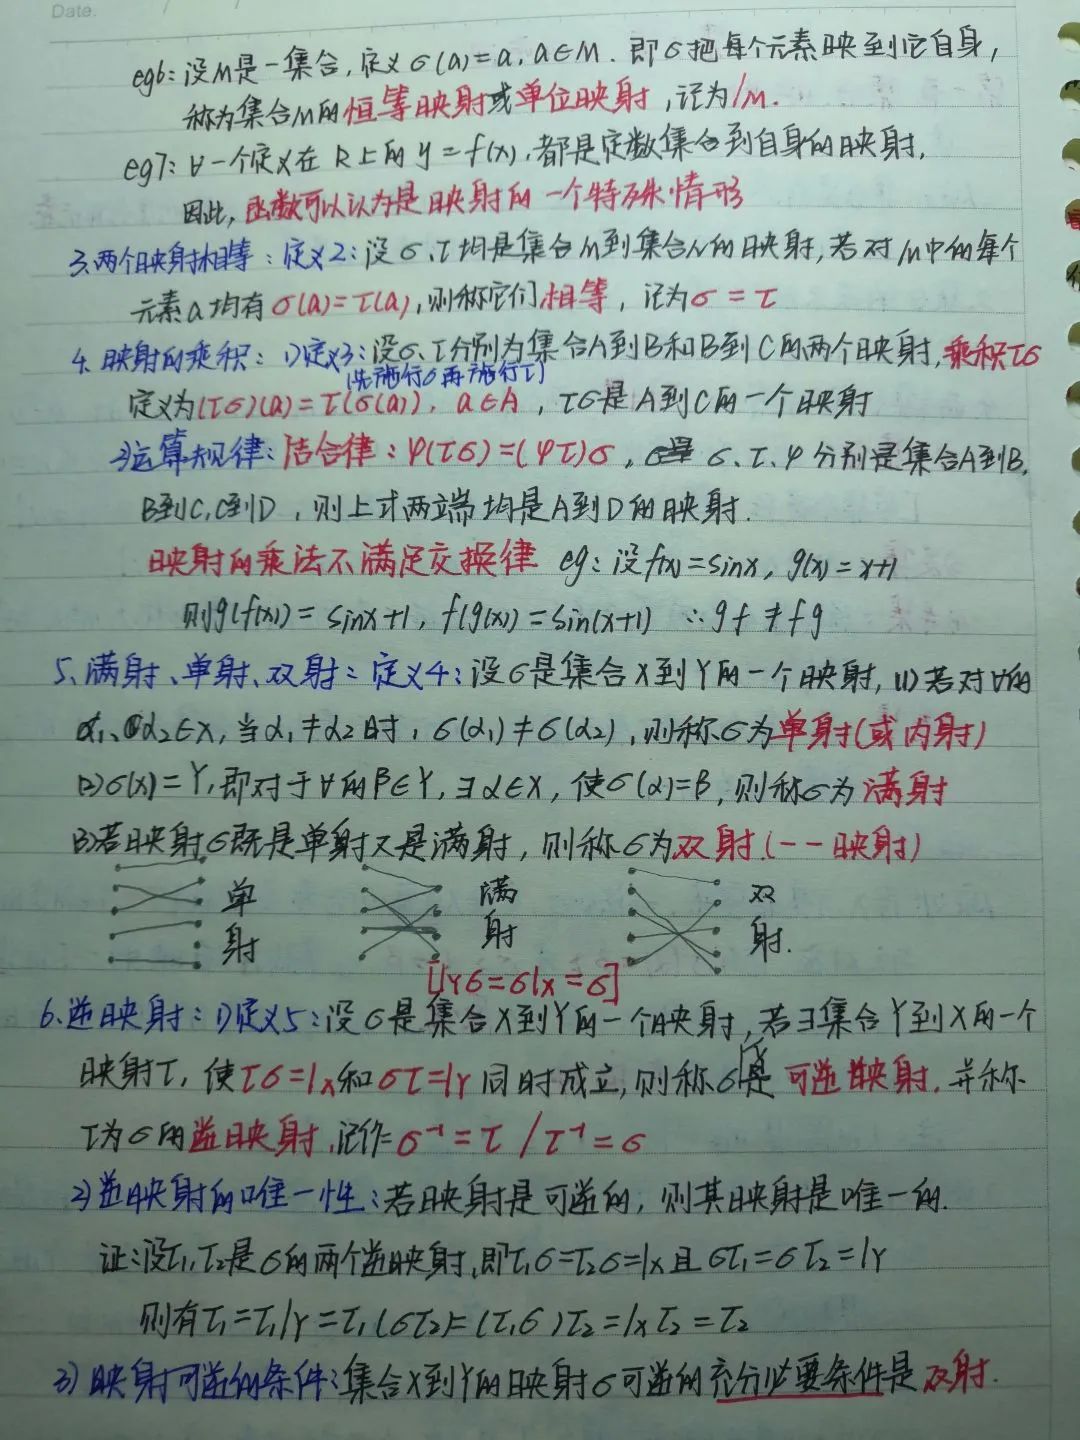 Date.
eg6：设M是一集合,定义σ(a)=a,a∈M.即σ把每个元素映到它自身,
称为集合M的恒等映射或单位映射,记为1M.
eg7：∀一个定义在R上的y=f(x),都是实数集合到自身的映射,
因此,函数可以认为是映射的一个特殊情形
3.两个映射相等：定义2：设σ、τ均是集合M到集合N的映射,若对M中的每个
元素a均有σ(a)=τ(a),则称它们相等,记为σ=τ
4.映射的乘积：1)定义3：设σ、τ分别为集合A到B和B到C的两个映射,乘积τσ
(先施行σ再施行τ)
定义为(τσ)(a)=τ(σ(a)),a∈A,τσ是A到C的一个映射
2)运算规律：结合律：ψ(τσ)=(ψτ)σ,σ、τ、ψ分别是集合A到B,
B到C,C到D,则上式两端均是A到D的映射.
映射的乘法不满足交换律 eg：设f(x)=sinx,g(x)=x+1
则g(f(x))=sinx+1,f(g(x))=sin(x+1) ∴gf≠fg
5、满射、单射、双射：定义4：设σ是集合X到Y的一个映射,(1)若对∀的
α1、α2∈X,当α1≠α2时,σ(α1)≠σ(α2),则称σ为单射(或内射)
(2)σ(x)=Y,即对于∀的β∈Y,∃α∈X,使σ(α)=β,则称σ为满射
(3)若映射σ既是单射又是满射,则称σ为双射.(一一映射)
单射
满射
双射.
[1Yσ=σ1X=σ]
6.逆映射：1)定义5：设σ是集合X到Y的一个映射,若∃集合Y到X的一个
映射τ,使τσ=1X和στ=1Y同时成立,则称σ是可逆映射.并称
τ为σ的逆映射,记作=σ⁻¹=τ/τ⁻¹=σ
2)逆映射的唯一性：若映射是可逆的,则其映射是唯一的.
证：设τ1,τ2是σ的两个逆映射,即τ1σ=τ2σ=1X且στ1=στ2=1Y
则有τ1=τ11Y=τ1(στ2)=(τ1σ)τ2=1Xτ2=τ2
3)映射可逆的条件：集合X到Y的映射σ可逆的充分必要条件是双射.